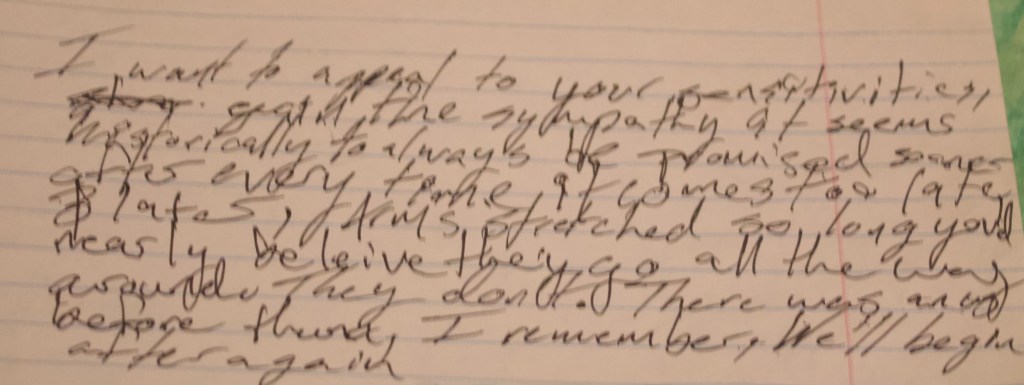 I want to appeal to your sensitivities,
gain the sympathy it seems
historically to always be promised sooner
after every time it comes too late,
later, Arms stretched so long you'd
nearly beleive they go all the way
around. They don't. There was an
before I remember, We'll begin
after again